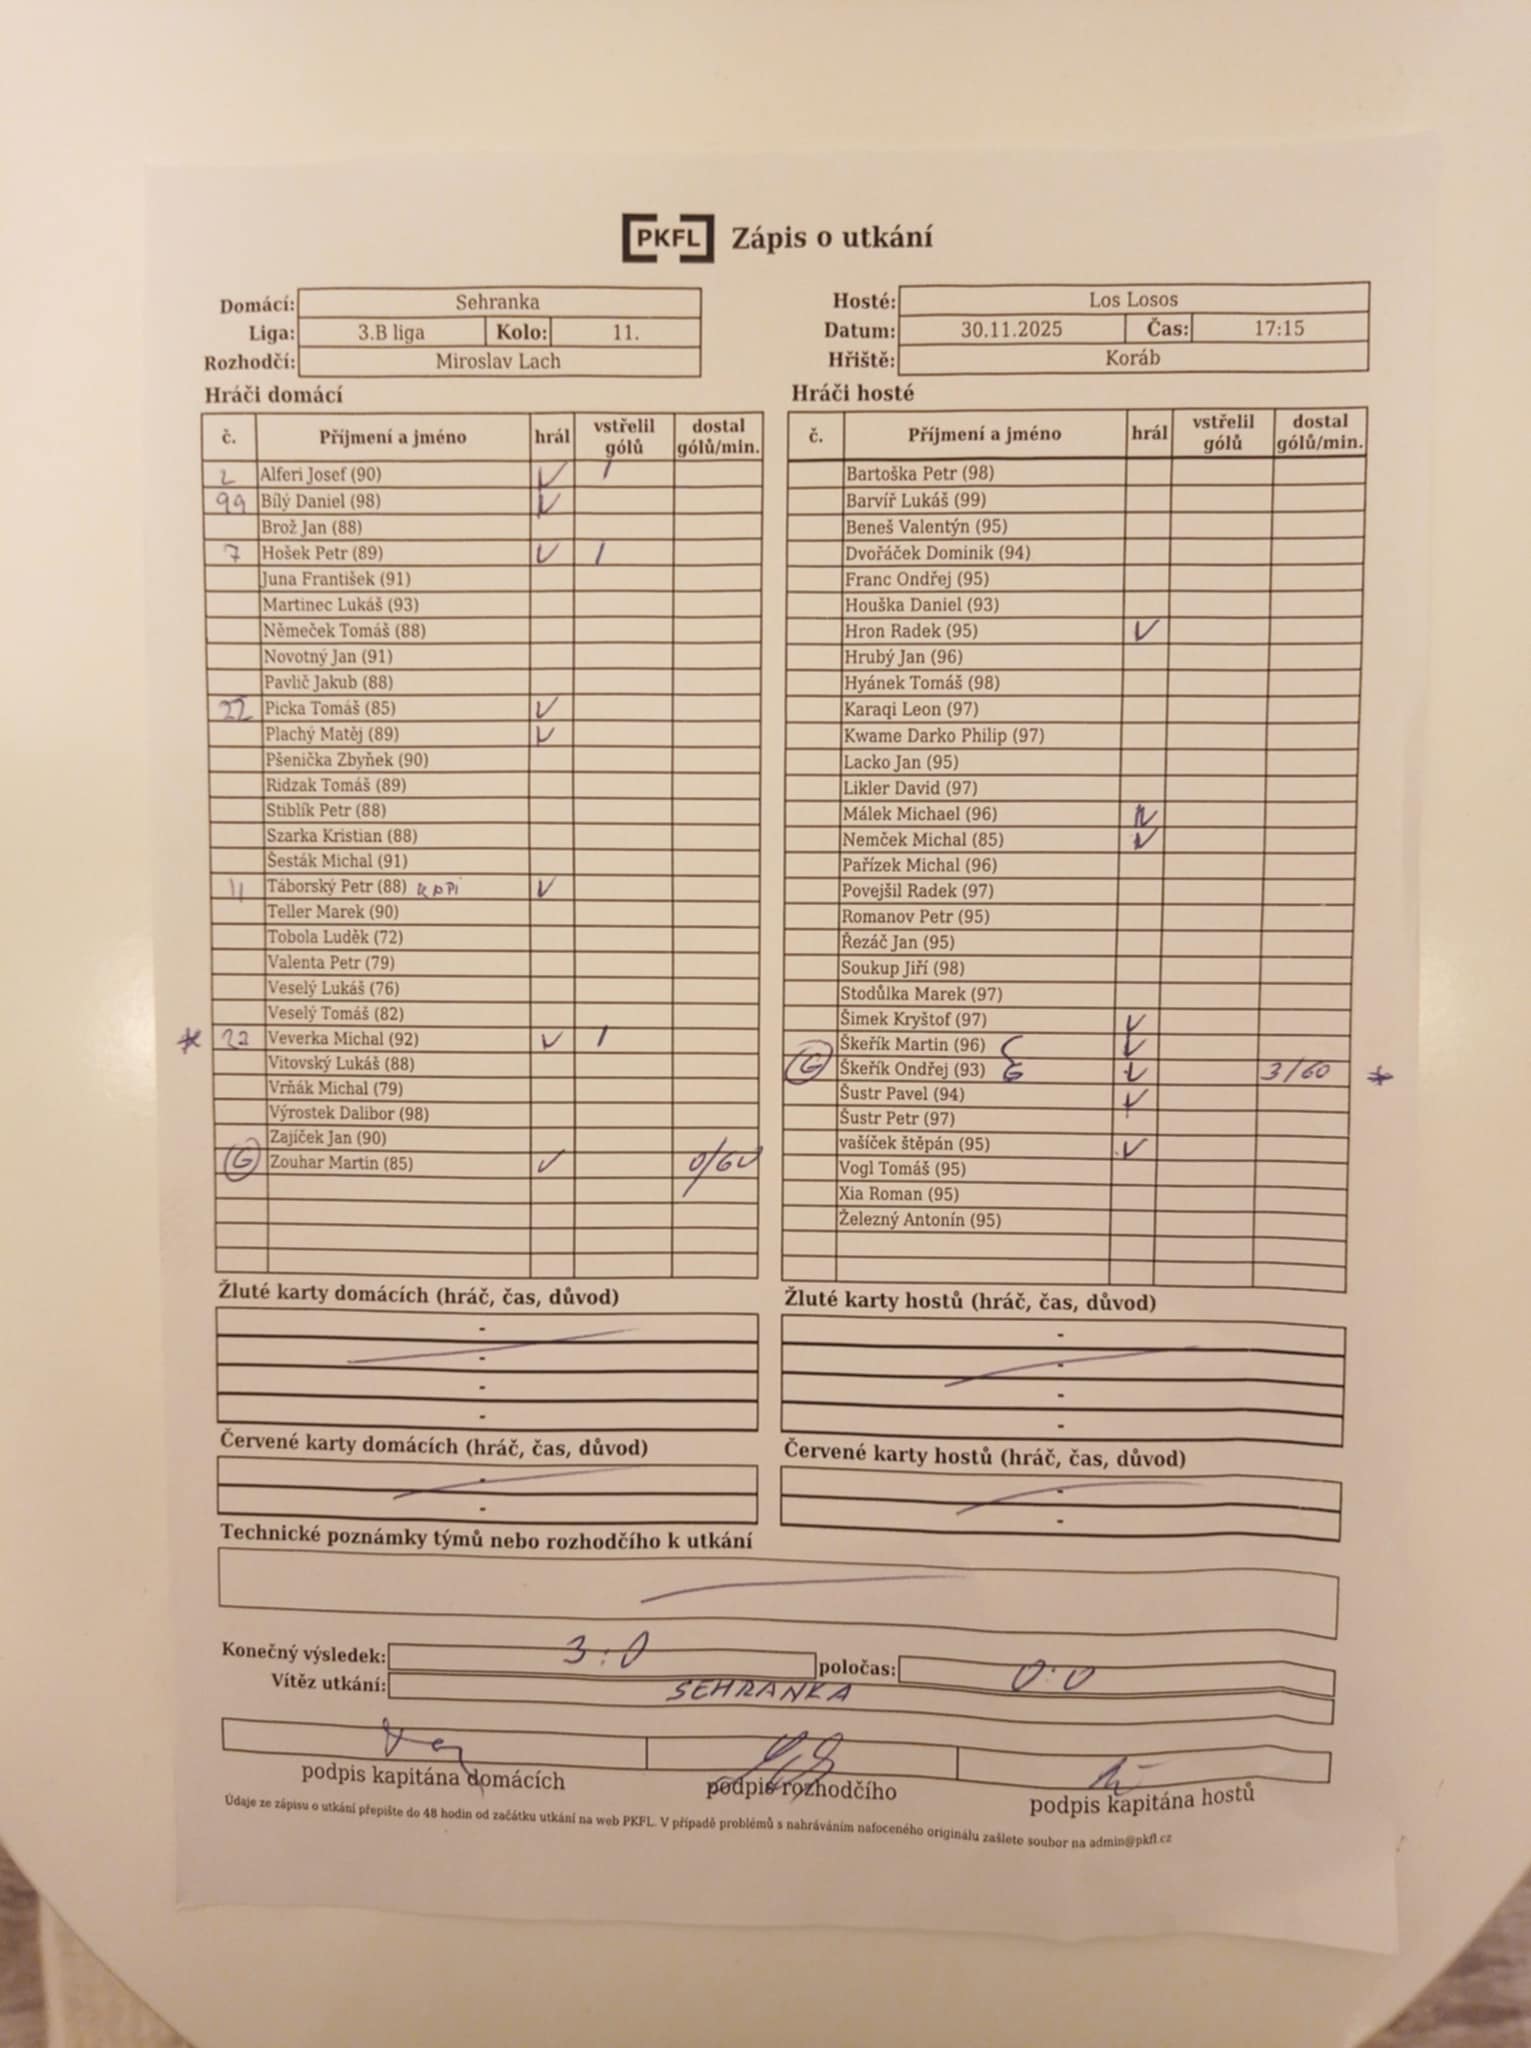 PKFL Zápis o utkání
Domácí: Sehranka
Liga: 3.B liga Kolo: 11.
Rozhodčí: Miroslav Lach
Hosté: Los Losos
Datum: 30.11.2025 Čas: 17:15
Hřiště: Koráb
Hráči domácí
č. Příjmení a jméno hrál vstřelil gólů dostal gólů/min.
2 Alferi Josef (90) 1
99 Bílý Daniel (98)
Brož Jan (88)
7 Hošek Petr (89) 1
Juna František (91)
Martinec Lukáš (93)
Němeček Tomáš (88)
Novotný Jan (91)
Pavlič Jakub (88)
22 Picka Tomáš (85)
Plachý Matěj (89)
Pšenička Zbyňek (90)
Ridzak Tomáš (89)
Stiblík Petr (88)
Szarka Kristian (88)
Šesták Michal (91)
11 Táborský Petr (88)
Teller Marek (90)
Tobola Luděk (72)
Valenta Petr (79)
Veselý Lukáš (76)
Veselý Tomáš (82)
* 22 Veverka Michal (92) 1
Vitovský Lukáš (88)
Vrňák Michal (79)
Výrostek Dalibor (98)
Zajíček Jan (90)
G Zouhar Martin (85) 0/60
Hráči hosté
č. Příjmení a jméno hrál vstřelil gólů dostal gólů/min.
Bartoška Petr (98)
Barvíř Lukáš (99)
Beneš Valentýn (95)
Dvořáček Dominik (94)
Franc Ondřej (95)
Houška Daniel (93)
Hron Radek (95)
Hrubý Jan (96)
Hyánek Tomáš (98)
Karaqi Leon (97)
Kwame Darko Philip (97)
Lacko Jan (95)
Likler David (97)
Málek Michael (96)
Nemček Michal (85)
Pařízek Michal (96)
Povejšil Radek (97)
Romanov Petr (95)
Řezáč Jan (95)
Soukup Jiří (98)
Stodůlka Marek (97)
Šimek Kryštof (97)
Škeřík Martin (96)
G Škeřík Ondřej (93) G 3/60 *
Šustr Pavel (94)
Šustr Petr (97)
vašíček štěpán (95)
Vogl Tomáš (95)
Xia Roman (95)
Železný Antonín (95)
Žluté karty domácích (hráč, čas, důvod)
-
-
-
-
Žluté karty hostů (hráč, čas, důvod)
-
-
-
-
Červené karty domácích (hráč, čas, důvod)
-
-
Červené karty hostů (hráč, čas, důvod)
-
-
Technické poznámky týmů nebo rozhodčího k utkání
Konečný výsledek: 3:0 poločas: 0:0
Vítěz utkání: SEHRANKA
podpis kapitána domácích podpis rozhodčího podpis kapitána hostů
Údaje ze zápisu o utkání přepište do 48 hodin od začátku utkání na web PKFL. V případě problémů s nahráváním nafoceného originálu zašlete soubor na admin@pkfl.cz